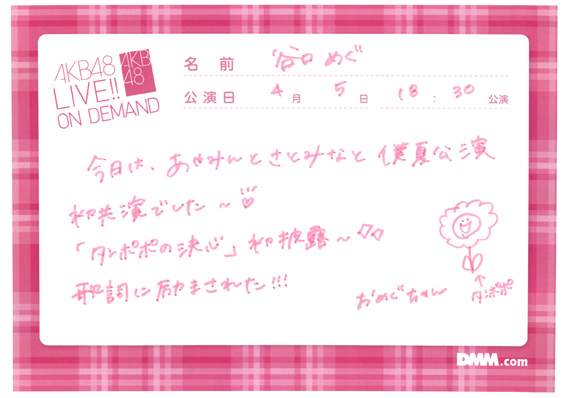 AKB48
LIVE!!
ON DEMAND
AKB
48
名前 谷口 めぐ
公演日 4月 5日 18:30 公演
今日は、あやみんとさとみなと僕夏公演
初共演でした〜♡
「タンポポの決心」初披露〜♪♪
歌詞に励まされた!!!
おめぐちゃん
↑
タンポポ
DMM.com